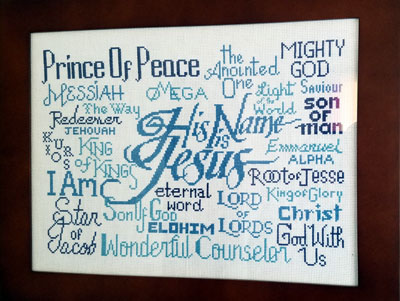 Prince Of Peace
The
Anointed
One
MIGHTY
GOD
MESSIAH
MEGA
Light
of the
World
Saviour
The Way
Redeemer
JEHOVAH
son
or
man
His Name
is
Jesus
KURIOS
KING
of KINGS
Emmanuel
ALPHA
I Am
eternal
word
Root of Jesse
LORD
OF
LORDS
King of Glory
Star
of
Jacob
Son Of God
ELOHIM
Christ
Wonderful Counselor
God With
Us